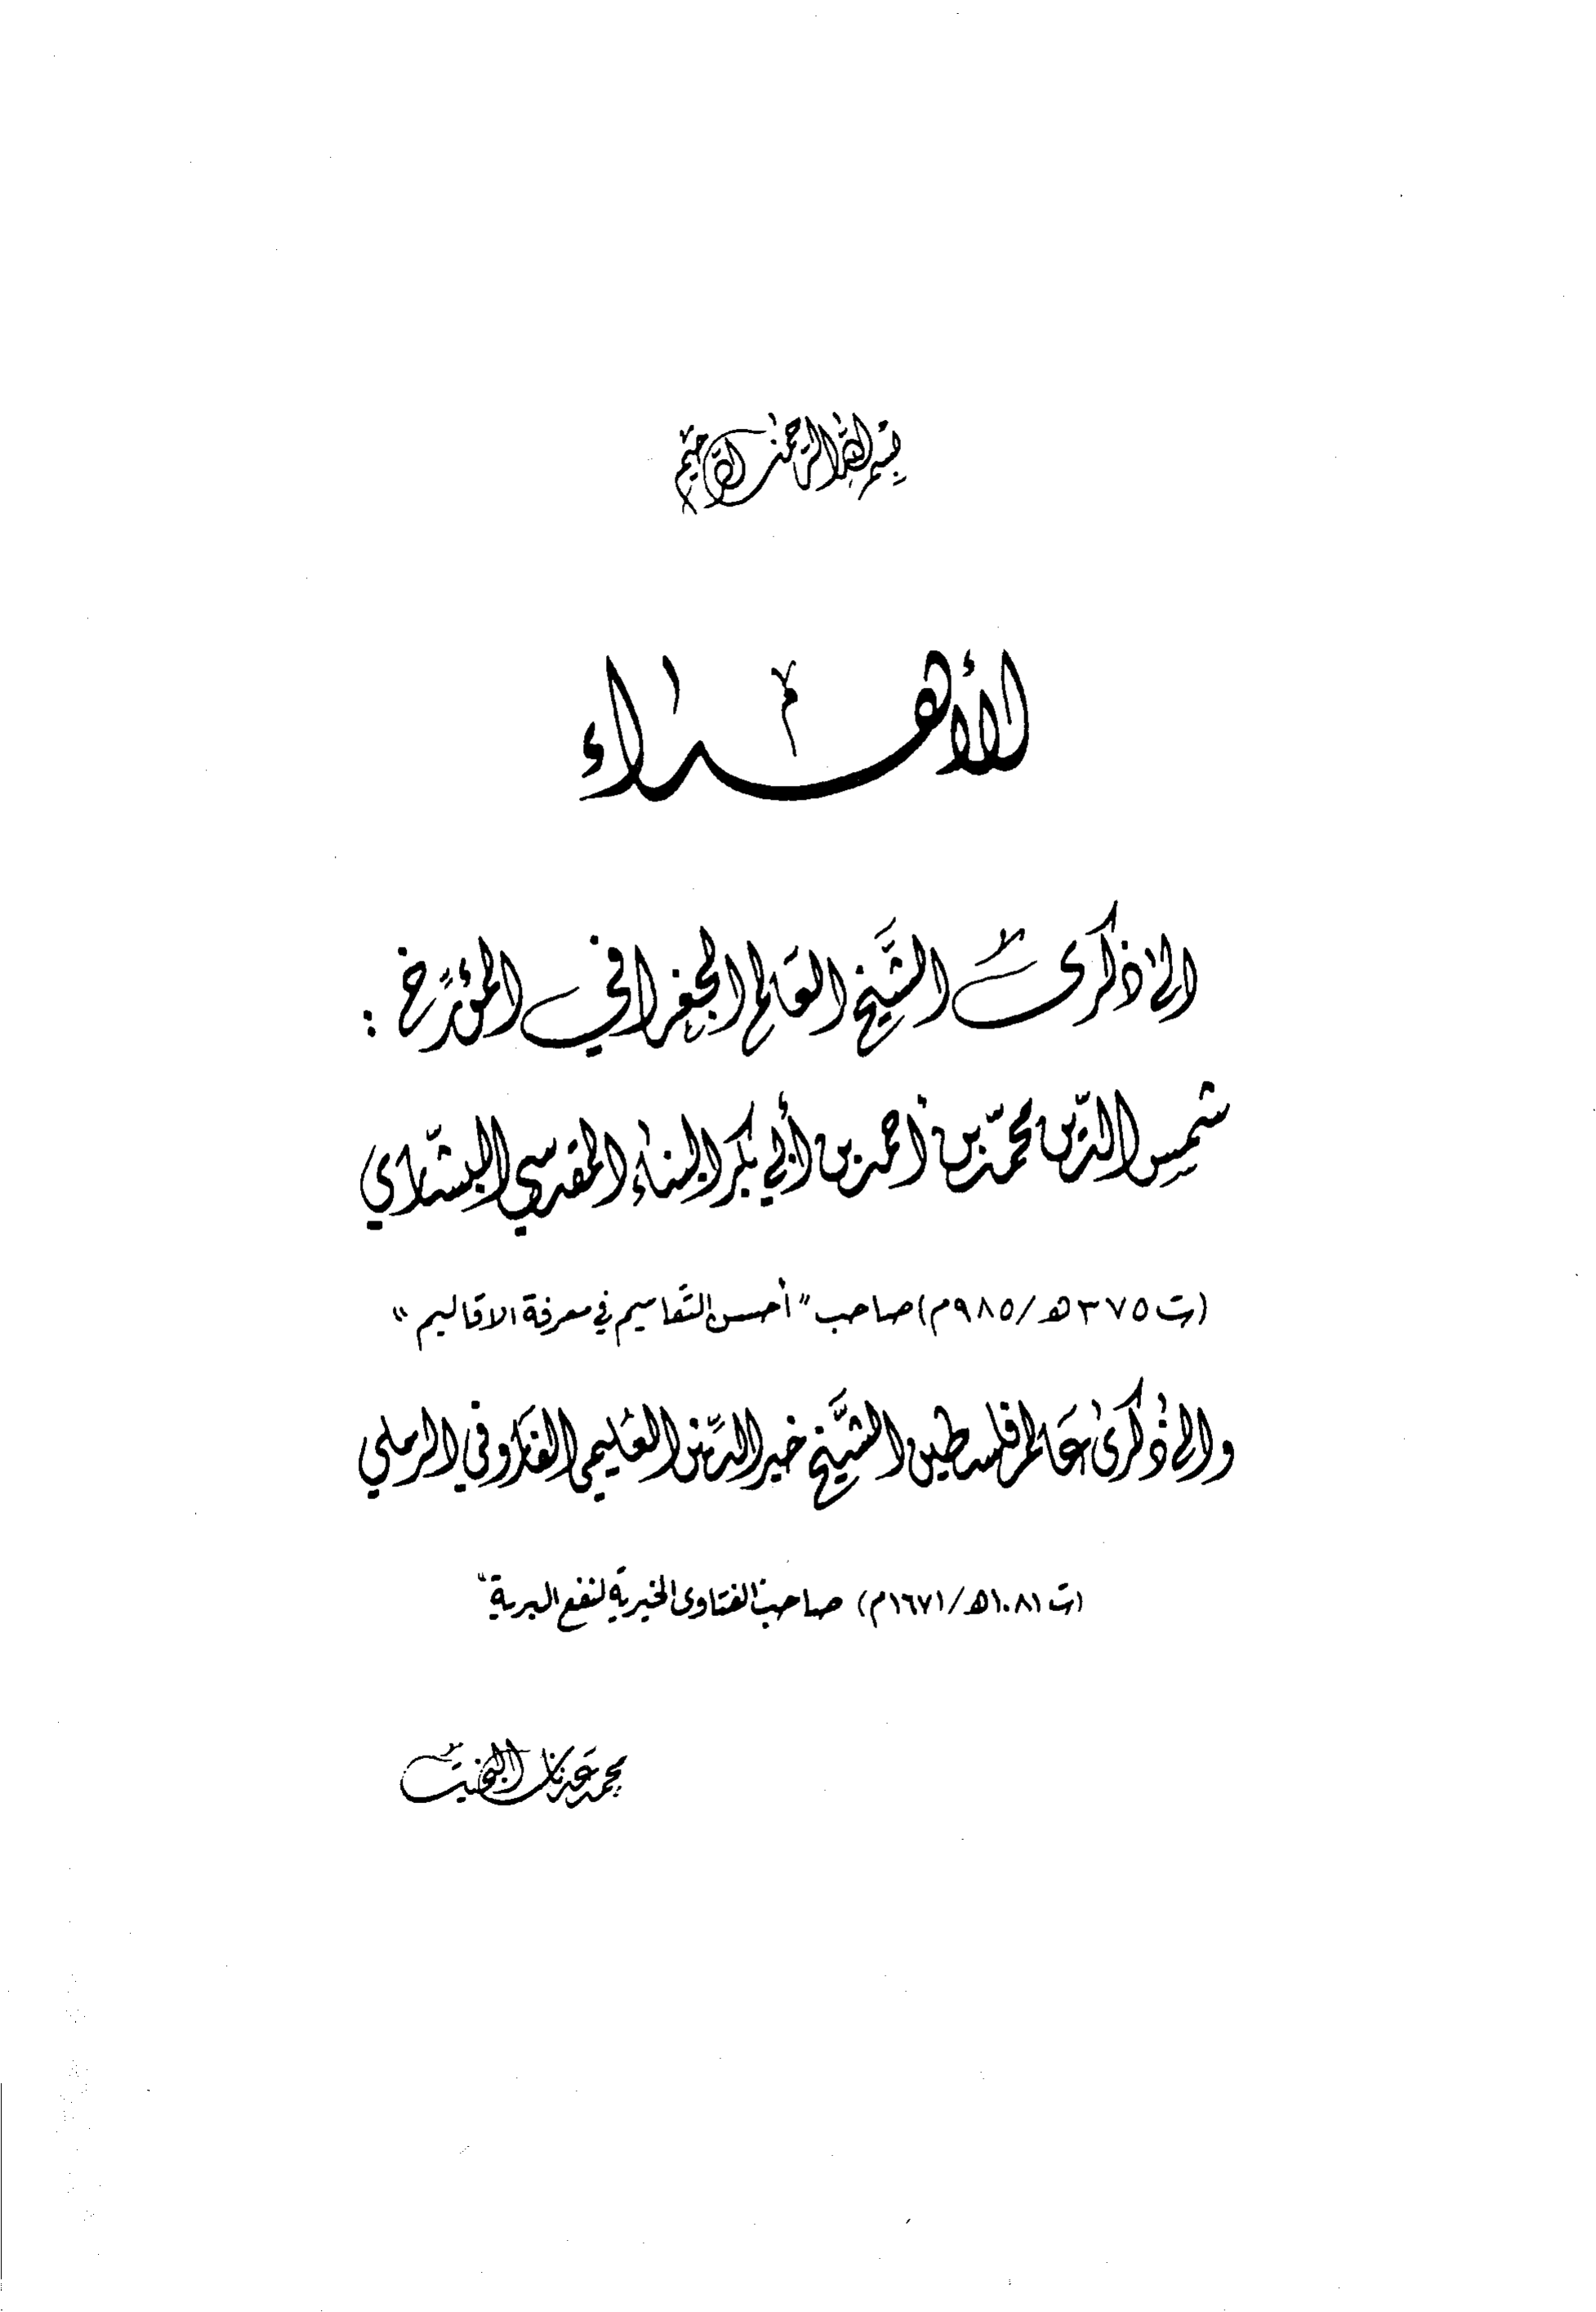 بسم الله الرحمن الرحيم
الأهداء
الى ذكرى الشيخ العالم الجغرافي المؤرخ :
شمس الدين محمد بن أحمد بن أبي بكر البناء المقدسي البشاري
(ت ٣٧٥ هـ / ٩٨٥ م) صاحب "أحسن التقاسيم في معرفة الاقاليم"
والى ذكرى عالم فلسطين الشيخ خير الدين العليمي الفاروقي الرملي
(ت ١٠٨١ هـ / ١٦٧١ م) صاحب "الفتاوى الخيرية لنفع البرية"
محمد عدنان البخيت